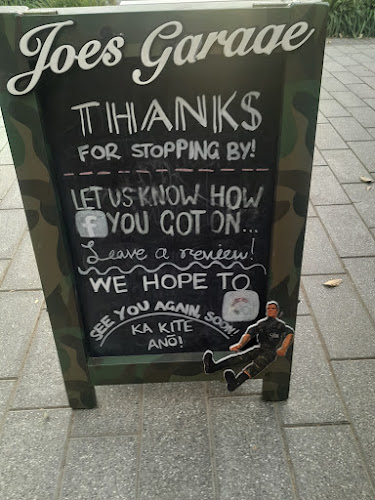 Joes Garage
THANKS
FOR STOPPING BY!
LET US KNOW HOW
f YOU GOT ON...
Leave a review!
WE HOPE TO
SEE YOU AGAIN SOON!
KA KITE
ANŌ!